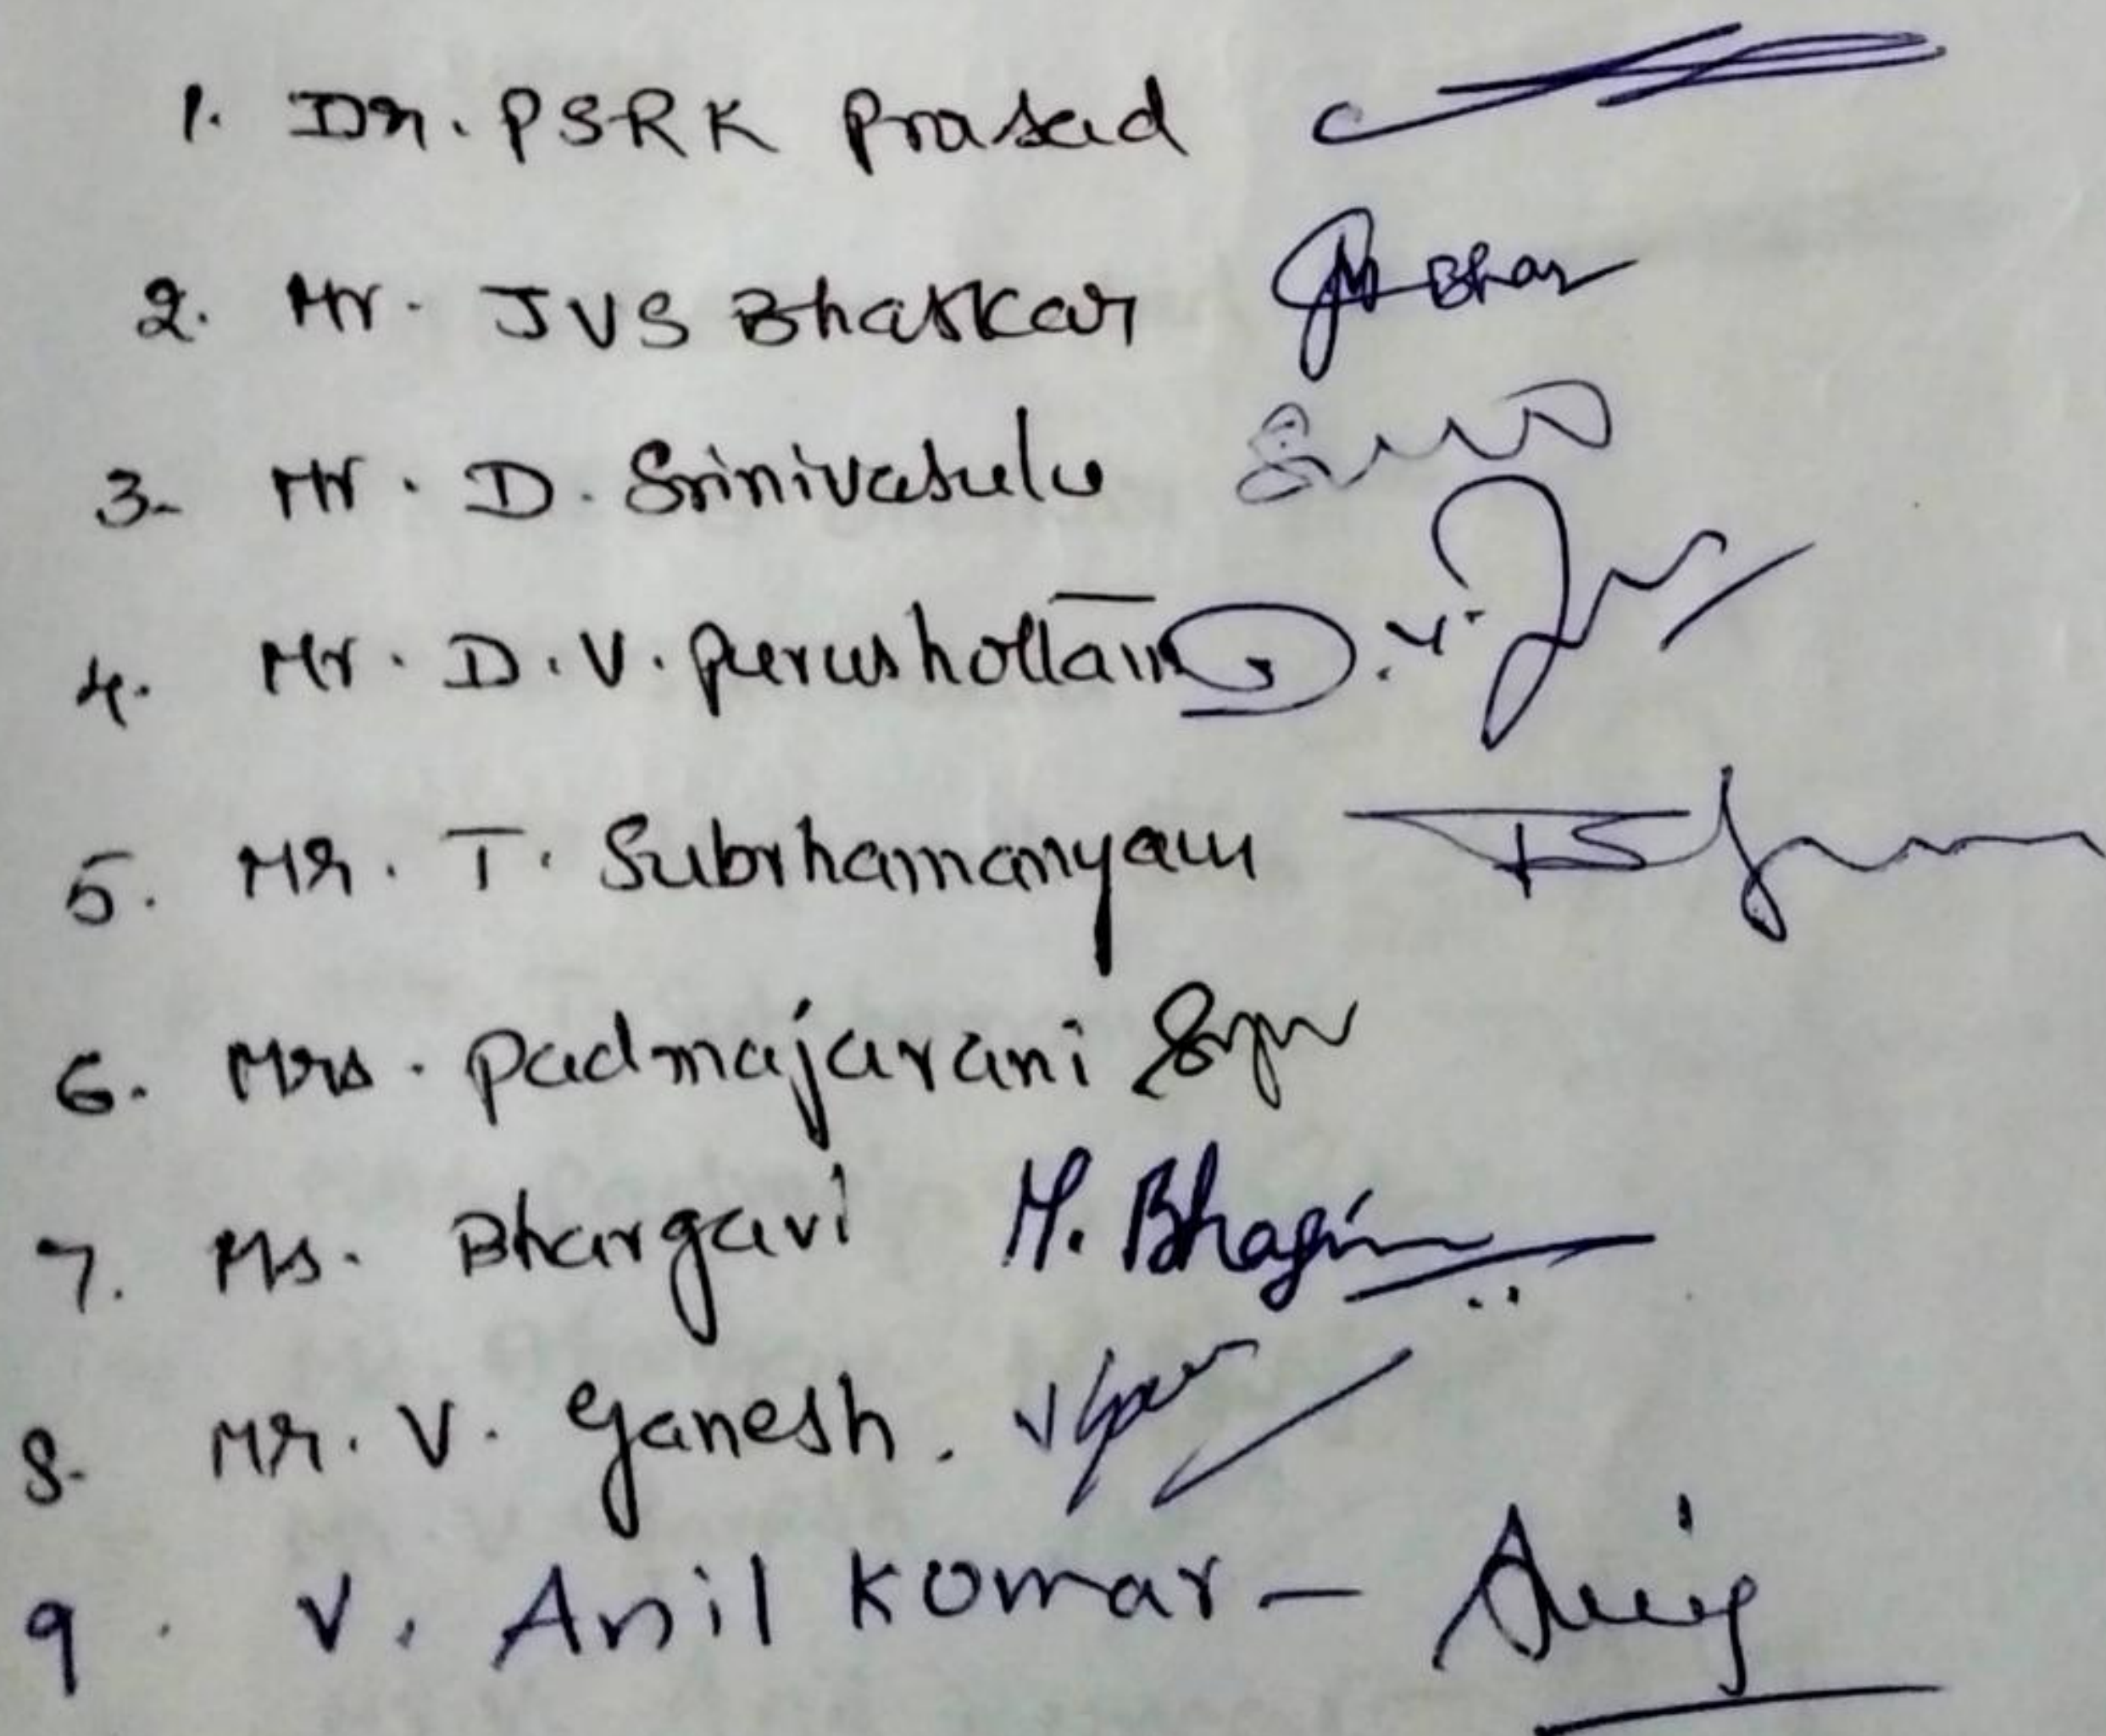 1. Dr. PSRK Prasad
2. Mr. JVS Bhaskar
3. Mr. D. Srinivasulu
4. Mr. D. V. Purushottam
5. Mr. T. Subrhamanyam
6. Mrs. Padmajarani
7. Ms. Bhargavi M. Bhagi
8. Mr. V. Ganesh.
9. V. Anil Kumar -